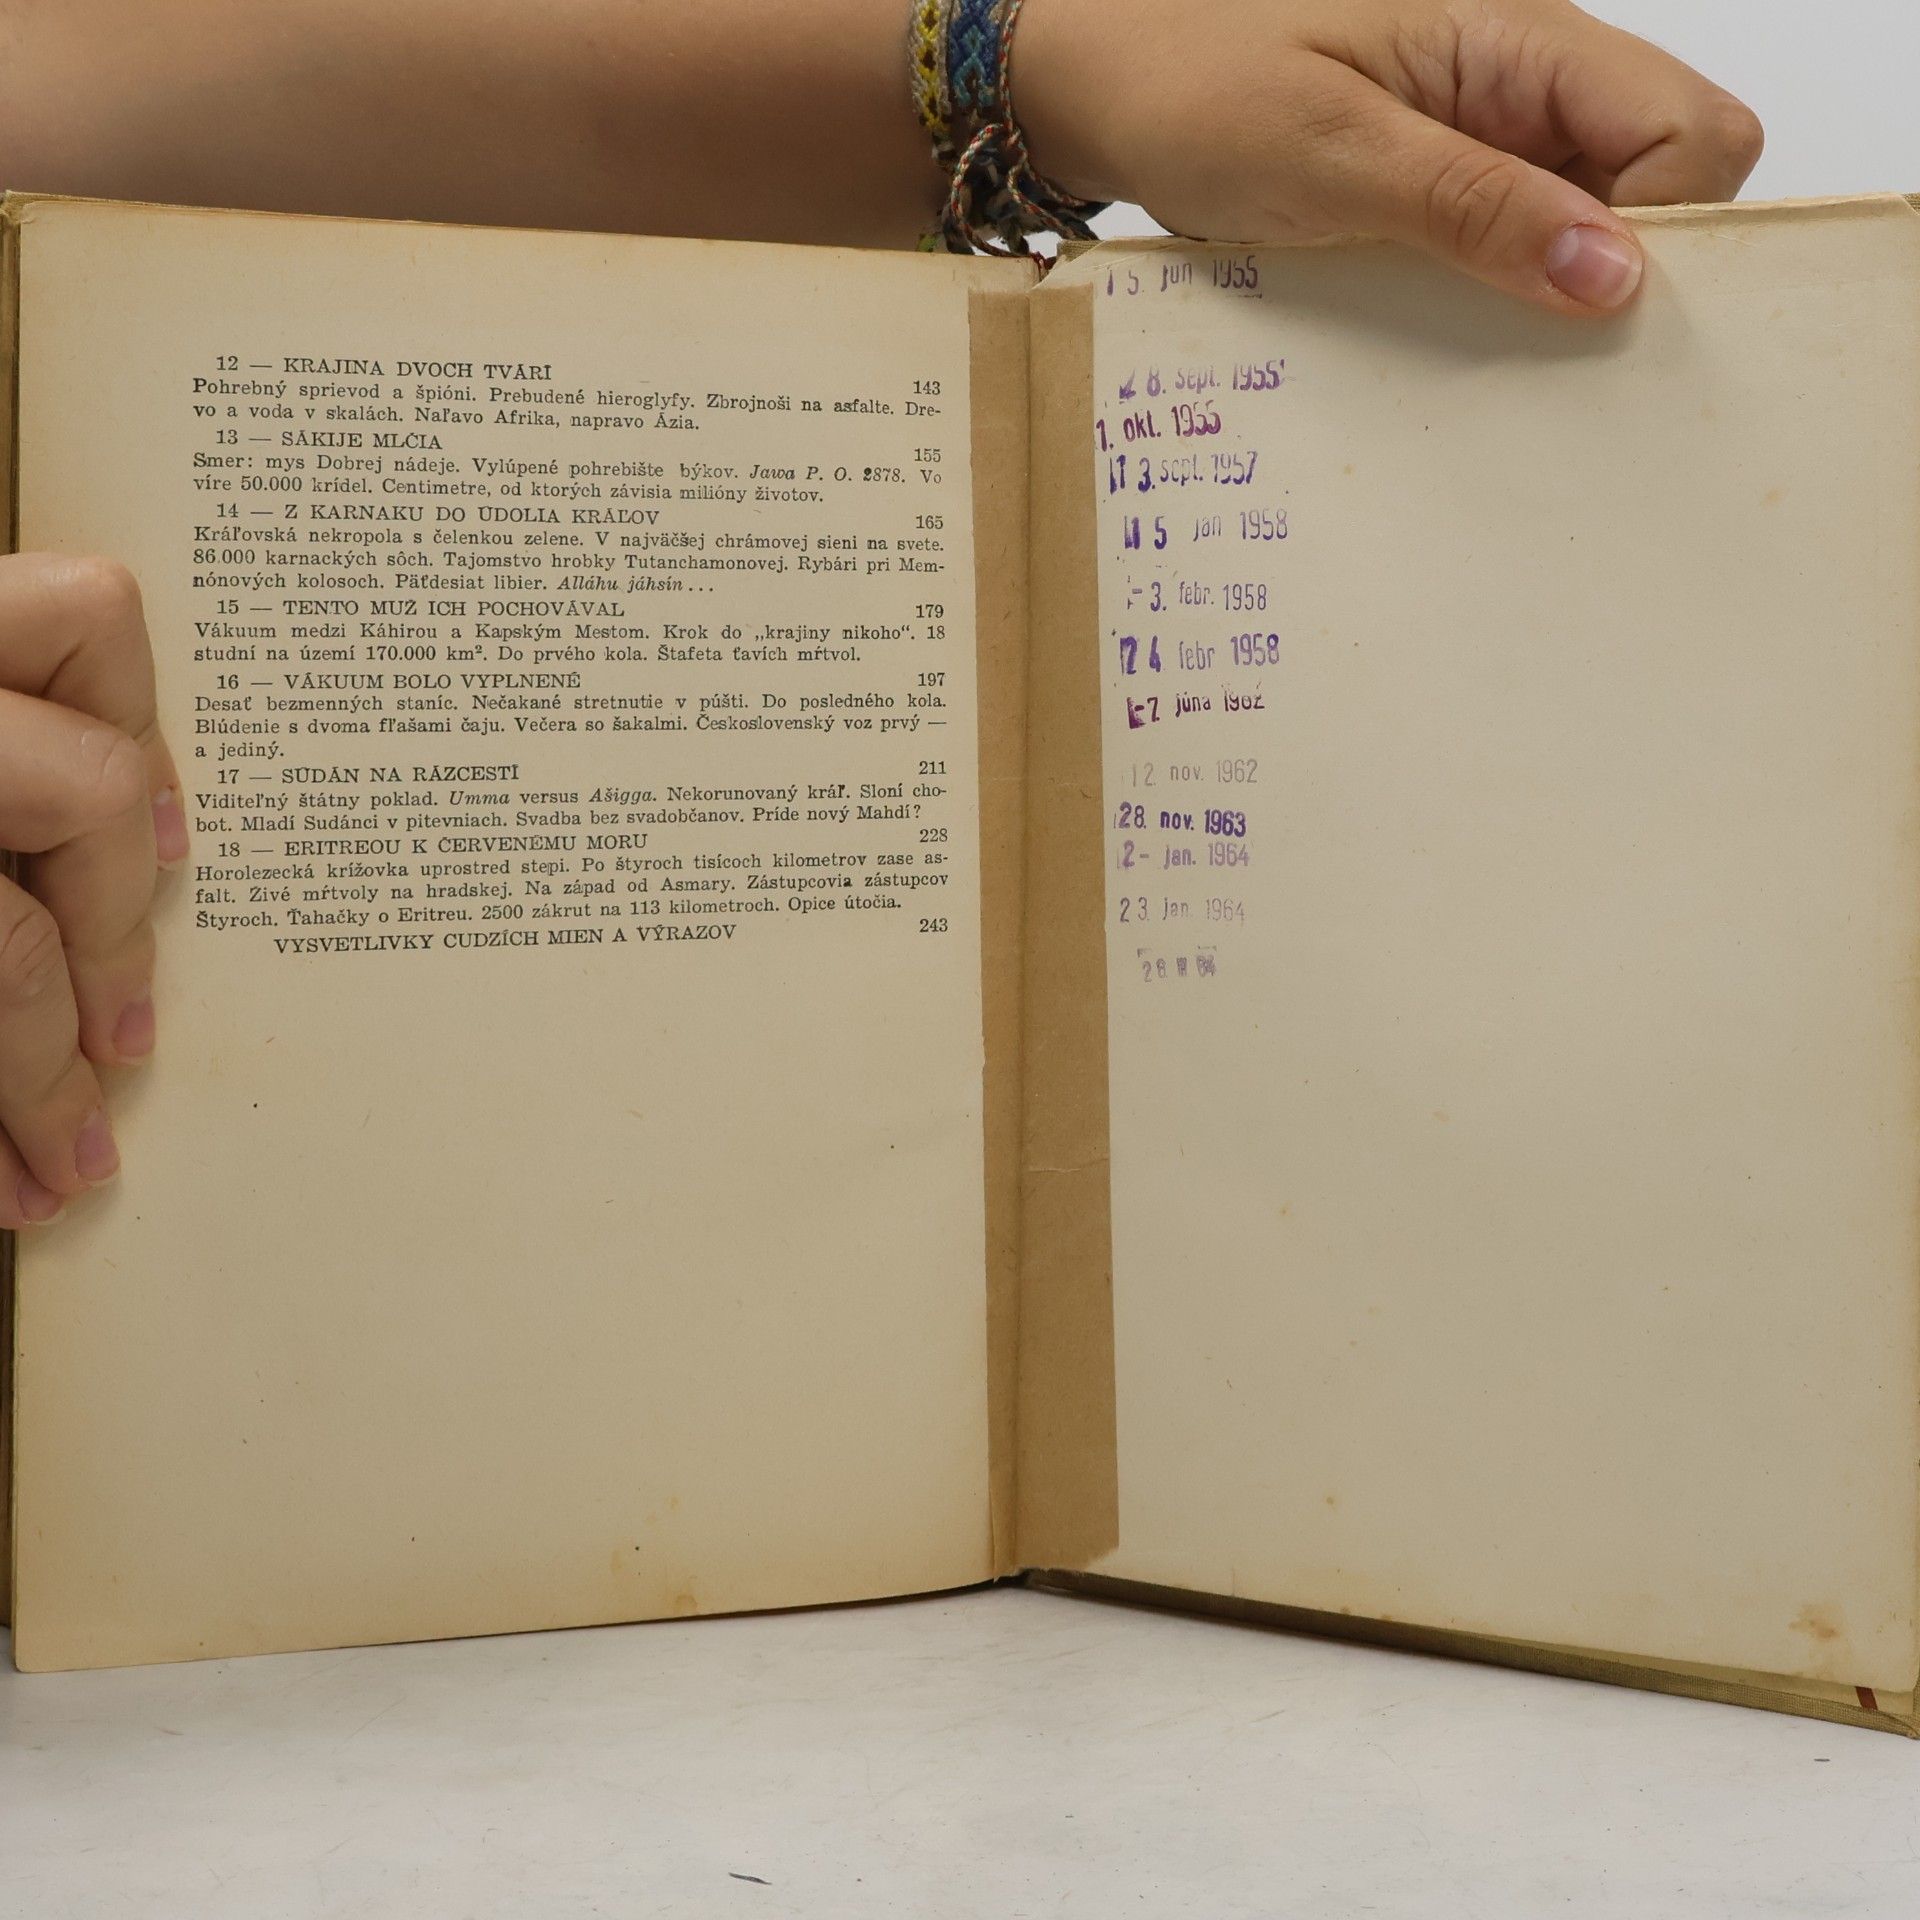 12 — KRAJINA DVOCH TVÁRÍ 143
Pohrebný sprievod a špióni. Prebudené hieroglyfy. Zbrojnoši na asfalte. Dre-
vo a voda v skalách. Naľavo Afrika, napravo Ázia.
13 — SÁKIJE MLČIA 155
Smer: mys Dobrej nádeje. Vylúpené pohrebište býkov. Jawa P. O. 2878. Vo
víre 50.000 krídel. Centimetre, od ktorých závisia milióny životov.
14 — Z KARNAKU DO ÚDOLIA KRÁĽOV 165
Kráľovská nekropola s čelenkou zelene. V najväčšej chrámovej sieni na svete.
86.000 karnackých sôch. Tajomstvo hrobky Tutanchamonovej. Rybári pri Mem-
nónových kolosoch. Päťdesiat libier. Alláhu jáhsín...
15 — TENTO MUŽ ICH POCHOVÁVAL 179
Vákuum medzi Káhirou a Kapským Mestom. Krok do „krajiny nikoho“. 18
studní na území 170.000 km². Do prvého kola. Štafeta ťavích mŕtvol.
16 — VÁKUUM BOLO VYPLNENÉ 197
Desať bezmenných staníc. Nečakané stretnutie v púšti. Do posledného kola.
Blúdenie s dvoma fľašami čaju. Večera so šakalmi. Československý voz prvý —
a jediný.
17 — SUDÁN NA RÁZCESTÍ 211
Viditeľný štátny poklad. Umma versus Ašigga. Nekorunovaný kráľ. Sloní cho-
bot. Mladí Sudánci v pitevniach. Svadba bez svadobčanov. Príde nový Mahdí?
18 — ERITREOU K ČERVENÉMU MORU 228
Horolezecká krížovka uprostred stepi. Po štyroch tisícoch kilometrov zase as-
falt. Živé mŕtvoly na hradskej. Na západ od Asmary. Zástupcovia zástupcov
Štyroch. Ťahačky o Eritreu. 2500 zákrut na 113 kilometroch. Opice útočia.
VYSVETLIVKY CUDZÍCH MIEN A VÝRAZOV 243
15. jún 1955
28. sept. 1955
1. okt. 1955
13. sept. 1957
15 jan 1958
-3. febr. 1958
24 febr 1958
-7. júna 1962
12. nov. 1962
28. nov. 1963
2- jan. 1964
23. jan. 1964